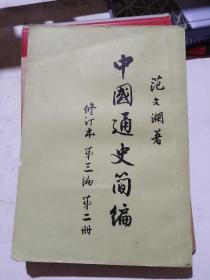 范文澜著
中國通史简編
修订本 第三编 第二册